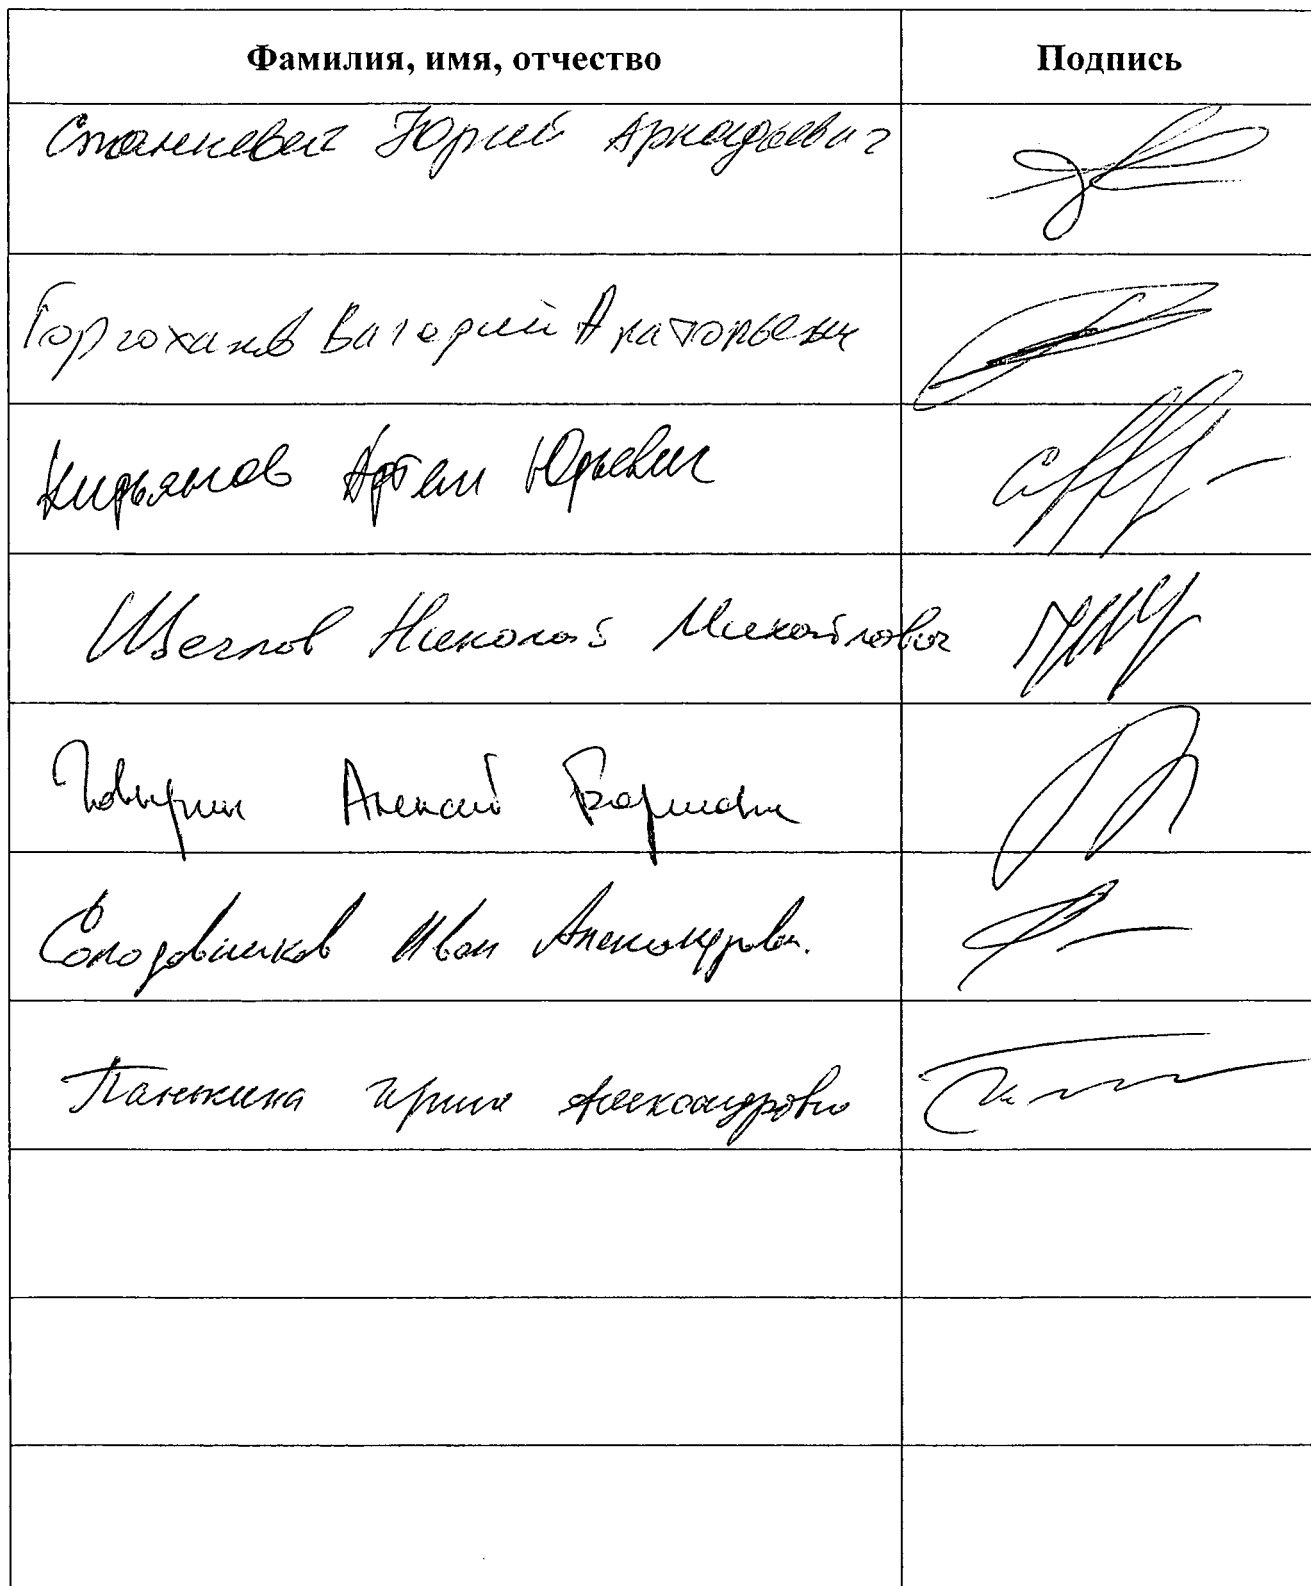 Фамилия, имя, отчество Подпись
Станкевич Юрий Аркадьевич
Гартоханов Валерий Анатольевич
Кирьянов Артем Юрьевич
Щеглов Николай Михайлович
Говырин Алексей Борисович
Солодовников Иван Александрович
Панькина Ирина Александровна